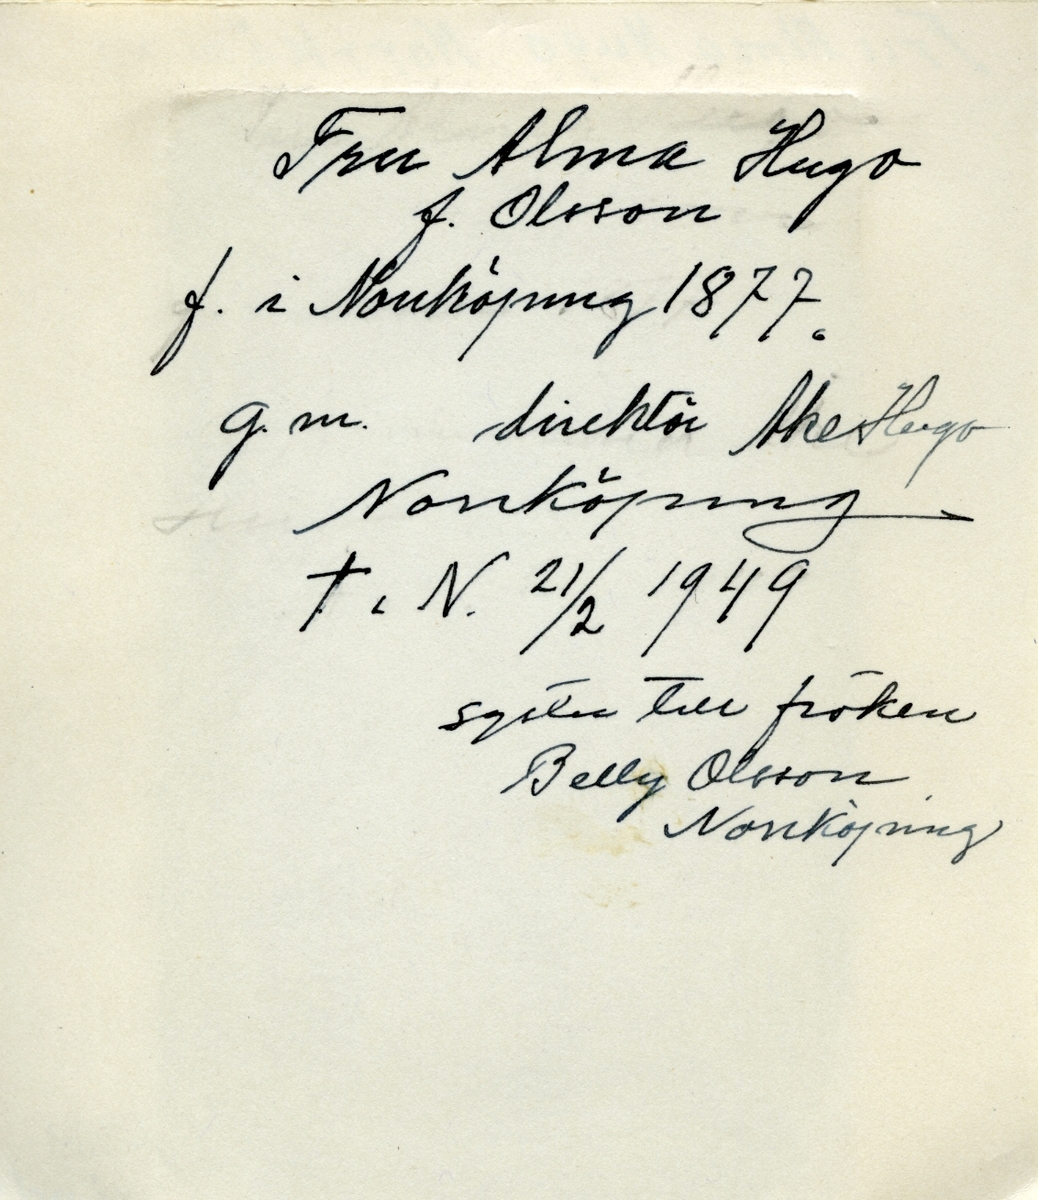 Fru Alma Hugo
f. Olsson
f. i Norrköping 1877.
g. m. direktör Åke Hugo
Norrköping
† i N. 21/2 1949
syster till fröken
Betty Olsson
Norrköping